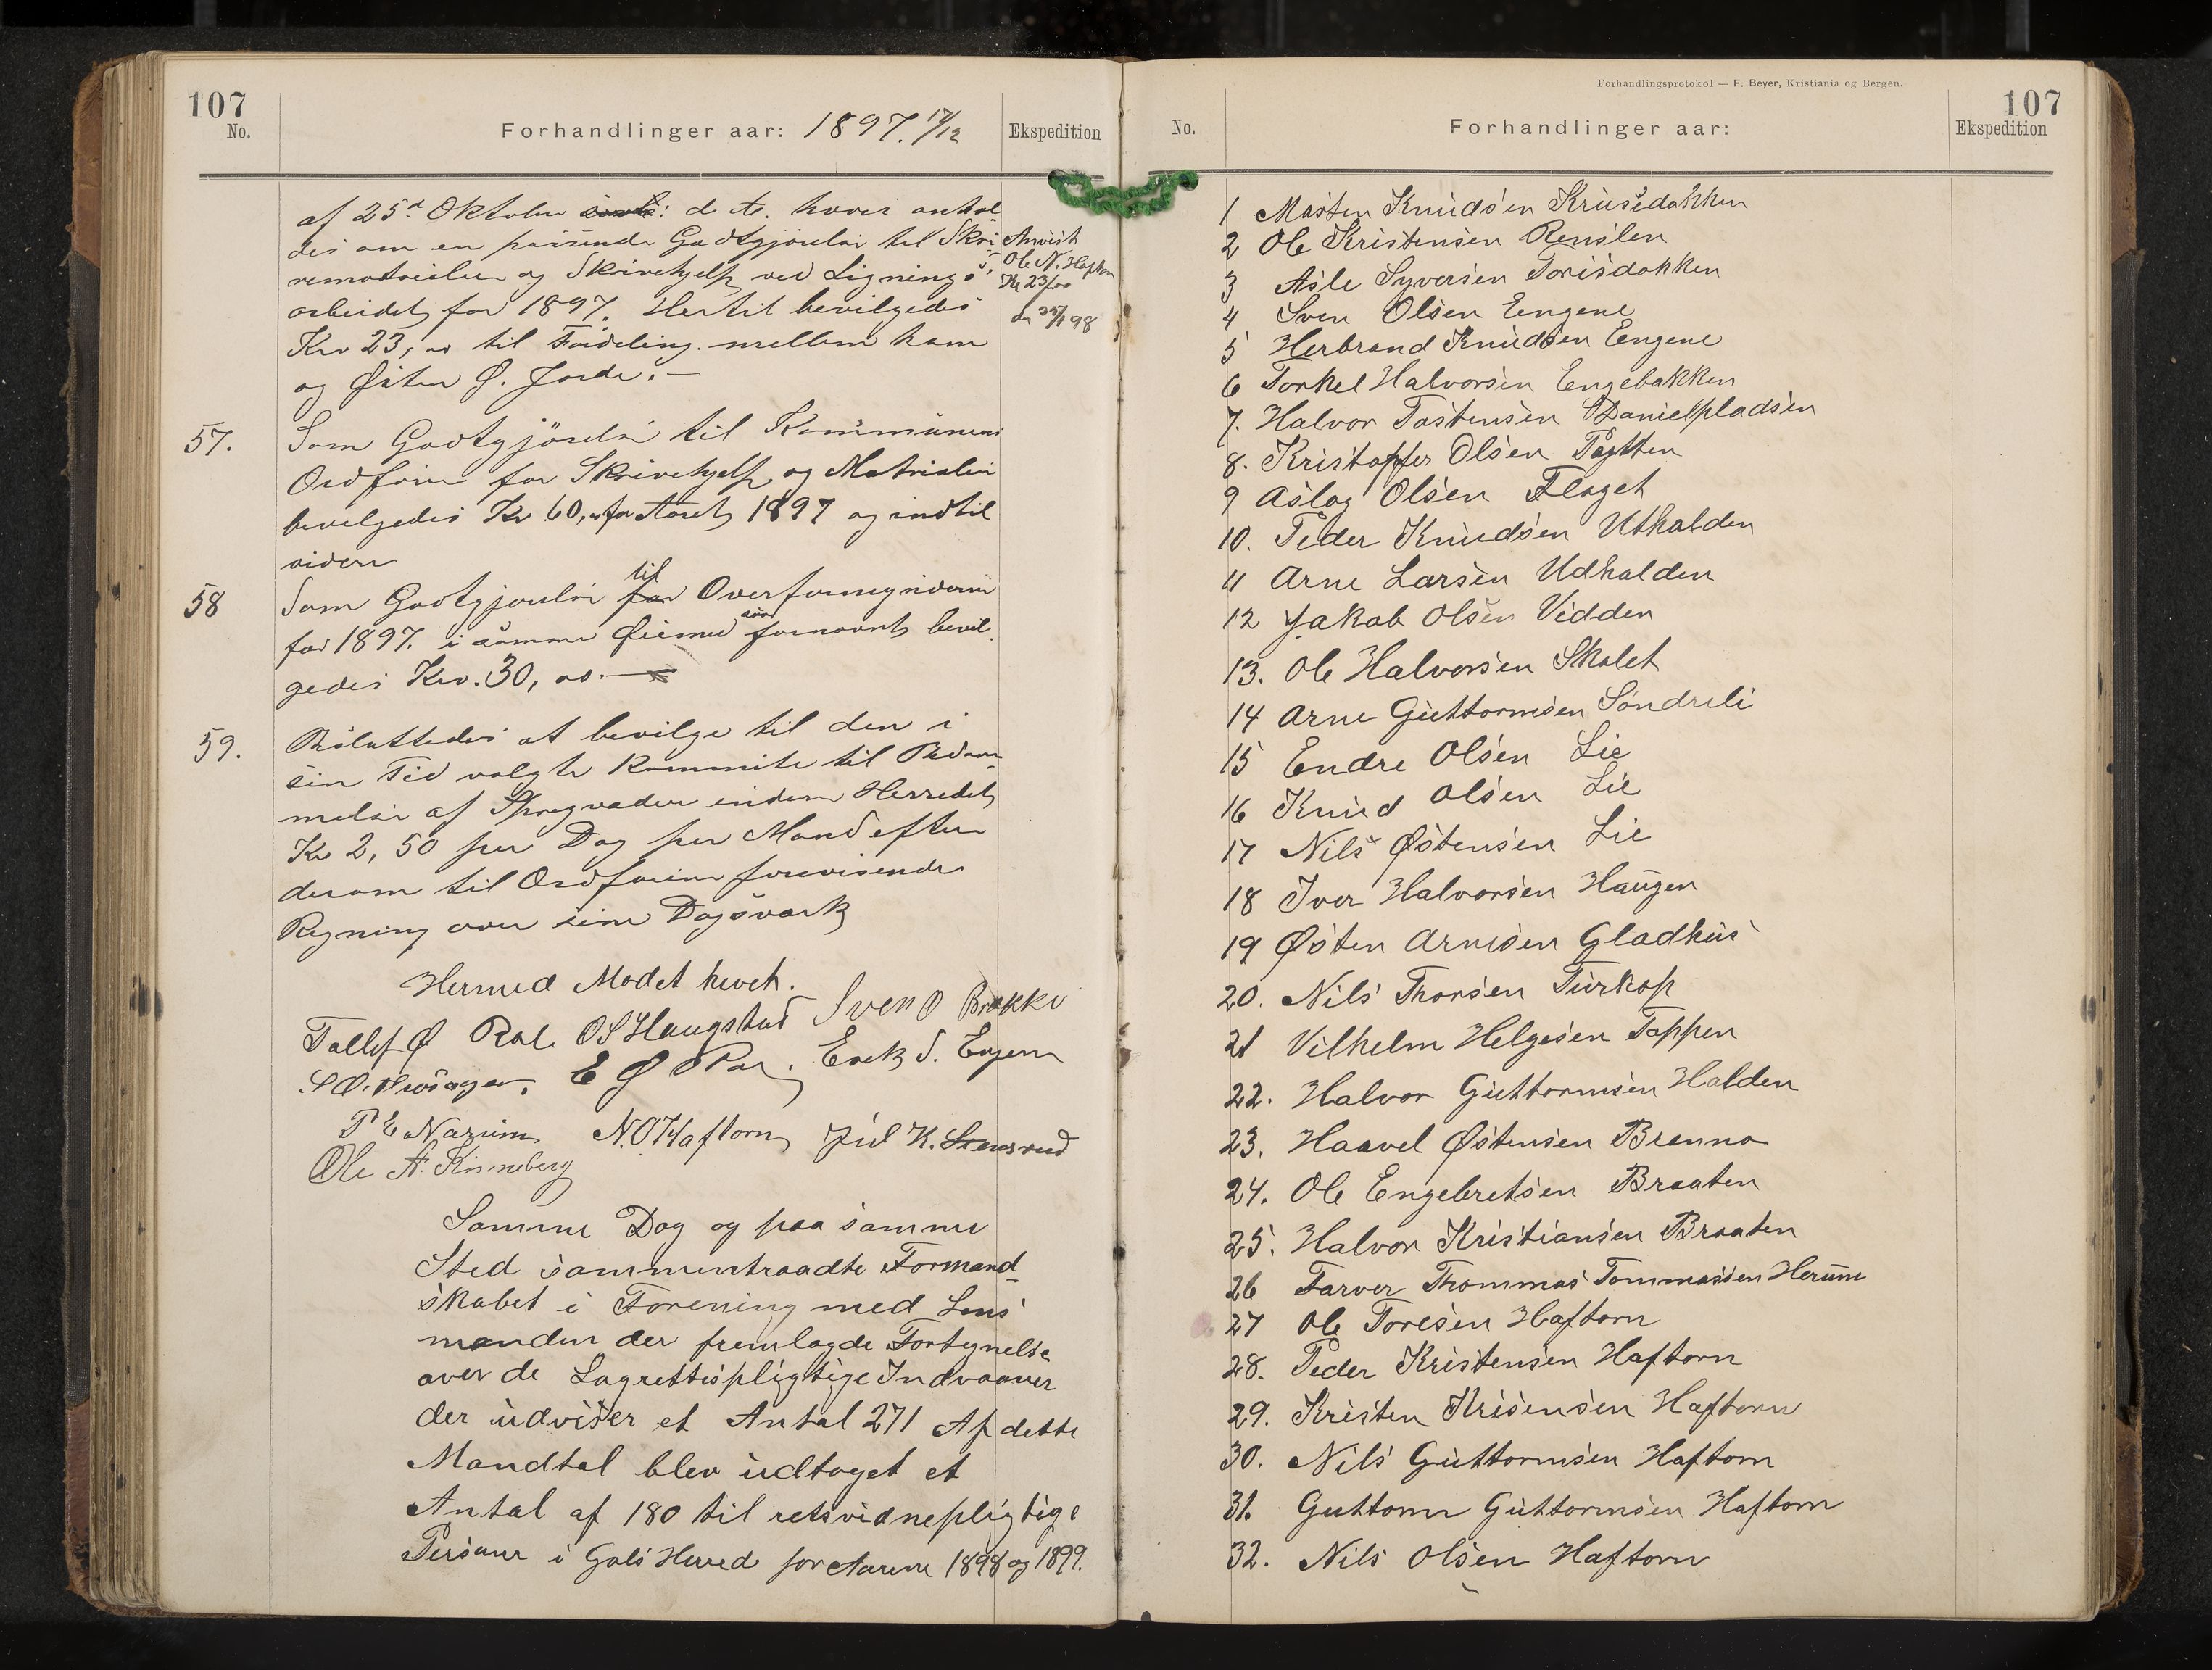 107
No.
Forhandlinger aar: 1897. 17/12
Ekspedition
af 25d Oktober d. A. hvori antal
des om en passende Godtgjörelse til Skri
vematerialier og Skrivehjelp ved Lignings
arbeidet for 1897. Hertil bevilgedes
Kr 23,00 til Fordeling mellem ham
og Østen Ø. Jorde. —
Anvist
Ole N. Haftorn
Kr 23,00
98
57.
Som Godtgjörelse til Kommunens
Ordförer for Skrivehjelp og Materialier
bevilgedes Kr 60, for Aaret 1897 og indtil
videre
58
Som Godtgjörelse for til Overformynderne
for 1897. i samme Øiemed som fornævnt bevil
gedes Kr. 30, 00. —
59.
Besluttedes at bevilge til den i
sin Tid valgte Kommite til Bedöm
melse af Herredet
Kr 2, 50 per Dag per Mand efter
derom til Ordföreren forevisende
Regning over sine Dagsværk
Hermed Mödet hevet.
Tollef Ø Rol. O S Haugstad Sven O Brøkke
E Ø Erik S. Engene
T E Narum N. O Haftorn Jul K. Stensrud
Ole A. Kinneberg
Samme Dag og paa samme
Sted sammentraadte Formand
skabet i Forening med Lens
manden der fremlagde Fortegnelse
over de Lagrettespligtige Indvaaner
der udviser et Antal 271 Af dette
Mandtal blev udtaget et
Antal af 180 til retsvidnepligtige
Personer i Gols Herred for Aarene 1898 og 1899.
Forhandlingsprotokol — F. Beyer, Kristiania og Bergen.
107
No.
Forhandlinger aar:
Ekspedition
1 Mosten Knudsen Krusedokken
2 Ole Kristensen Renslen
3 Asle Syversen Torisdokken
4 Sven Olsen Engene
5 Herbrand Knudsen Engene
6 Torkel Halvorsen Engebakken
7. Halvor Tostensen Danielpladsen
8. Kristoffer Olsen Pøtten
9 Aslag Olsen Flaget
10. Peder Knudsen Uthalden
11 Arne Larsen Udhalden
12 Jakob Olsen Vidden
13. Ole Halvorsen Skolet
14 Arne Guttormsen Söndreli
15 Endre Olsen Lie
16 Knud Olsen Lie
17 Nils Østensen Lie
18 Iver Halvorsen Haugen
19 Østen Arnesen Gladhus
20. Nils Thorsen Turkop
21 Vilhelm Helgesen Toppen
22. Halvor Guttormsen Halden
23. Haavel Østensen Brenno
24. Ole Engebretsen Braaten
25. Halvor Kristiansen Braaten
26 Farver Thommas Tommassen Herum
27 Ole Toresen Haftorn
28. Peder Kristensen Haftorn
29. Kristen Krisensen Haftorn
30. Nils Guttormsen Haftorn
31. Guttorm Guttormsen Haftorn
32. Nils Olsen Haftorn